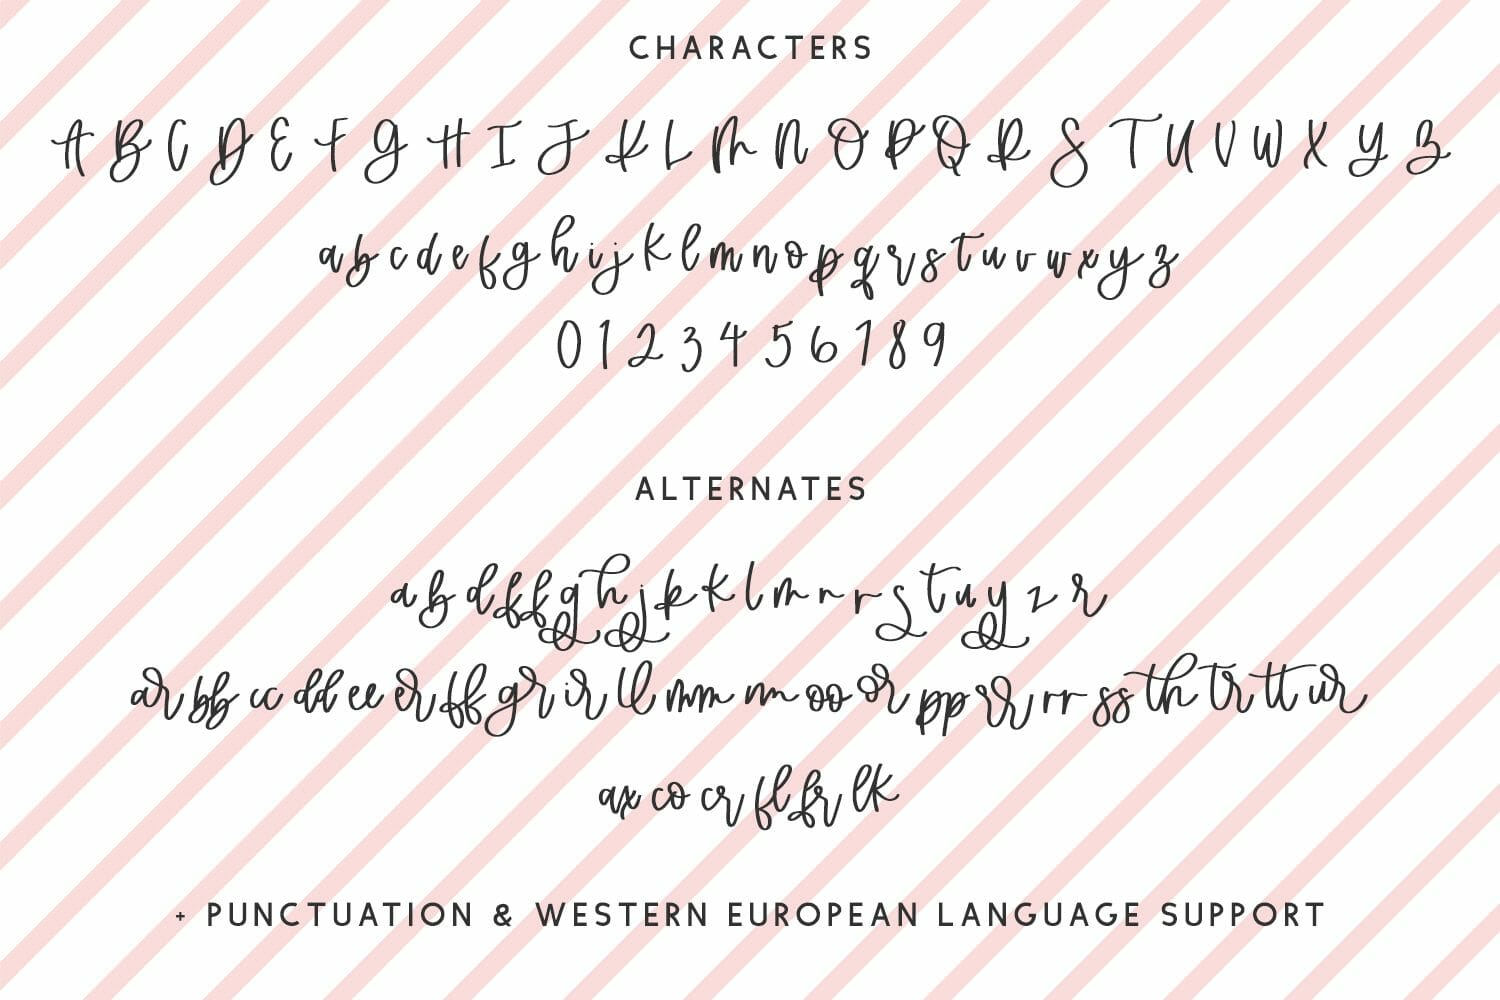 CHARACTERS
A B C D E F G H I J K L M N O P Q R S T U V W X Y Z
a b c d e f g h i j k l m n o p q r s t u v w x y z
0 1 2 3 4 5 6 7 8 9
ALTERNATES
a b d f f g h j k k l m n r s t u y z r
ar bb cc dd ee er ff gr ir ll mm nn oo or pp rr rr ss th tr tt ur
ax co cr fl fr lk
+ PUNCTUATION & WESTERN EUROPEAN LANGUAGE SUPPORT